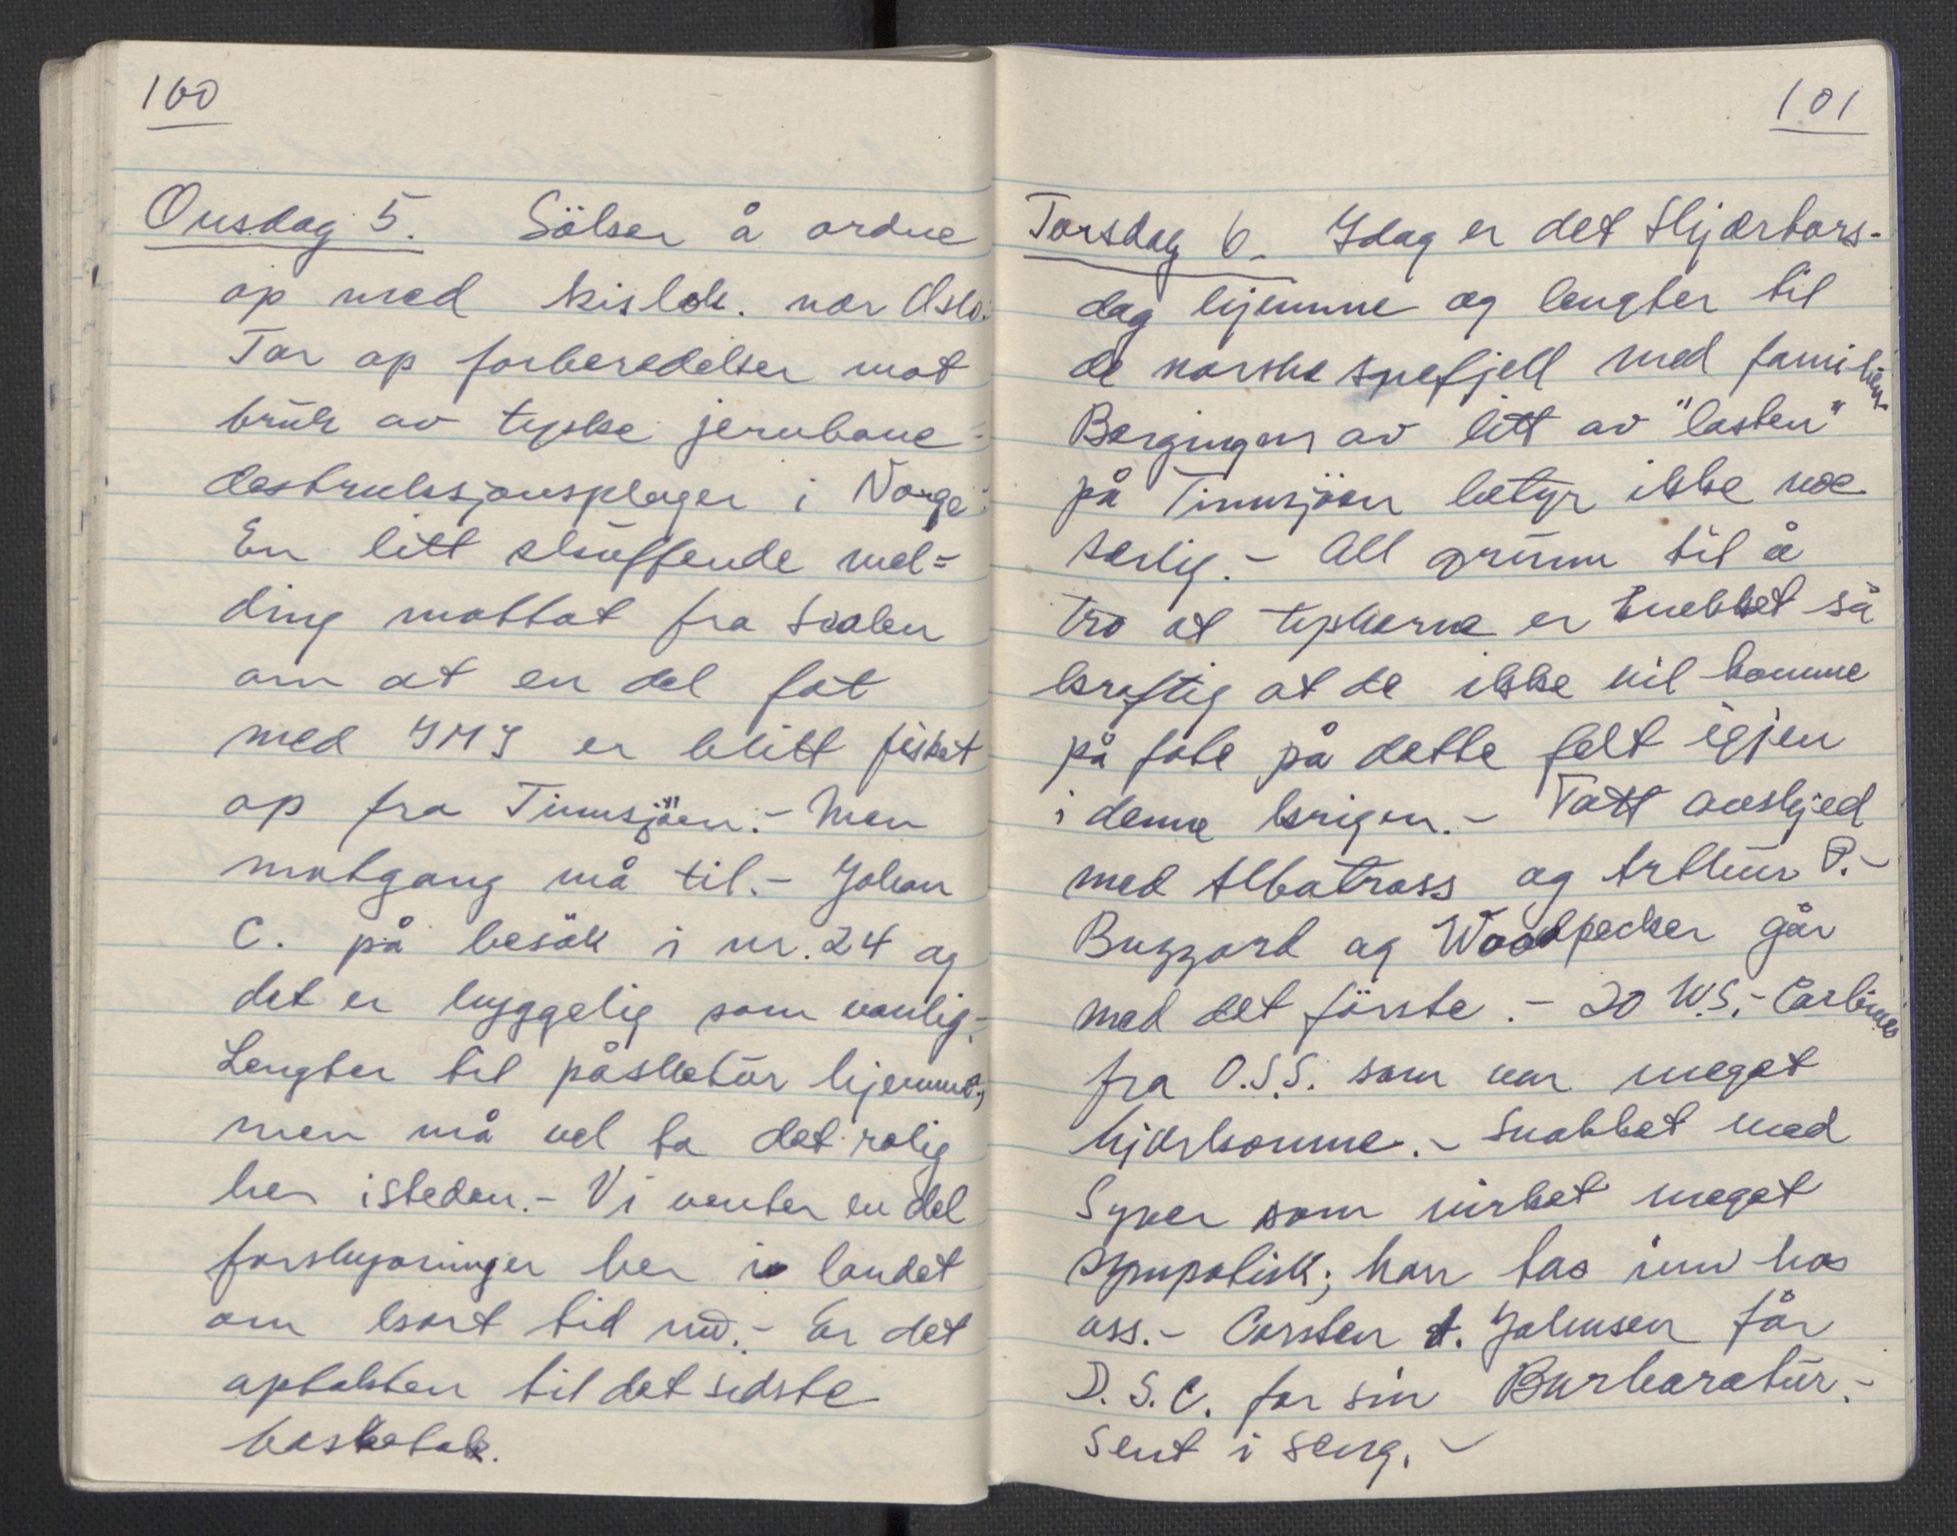 100
Onsdag 5. Sölser å ordne
op med kislok. nær Oslo.
Tar op forberedelser mot
bruk av tyske jernbane-
destruksjonsploger i Norge.
En litt skuffende mel=
ding mottat fra Svalen
om at en del fat
med IMI er blitt fisket
op fra Tinnsjöen.- Men
motgang må til.- Johan
C. på besök i nr. 24 og
det er hyggelig som vanlig.-
Lengter til påsketur hjemme,
men må vel ta det rolig
her isteden.- Vi venter en del
forskyvninger her i landet
om kort tid nu.- Er det
optakten til det sidste
basketak.
101
Torsdag 6. Idag er det Skjærtors-
dag hjemme og lengter til
de norske snefjell med familien
Bergingen av litt av "lasten"
på Tinnsjöen betyr ikke noe
særlig.- All grunn til å
tro at tyskerne er knekket så
kraftig at de ikke vil komme
på fote på dette felt igjen
i denne krigen.- Tatt avskjed
med Albatross og Arthur P.-
Buzzard og Woodpecker går
med det förste.- 20 W.S.- Carbines
fra O.S.S. som var meget
hjælsomme.- Snakket med
Syver som virket meget
sympatisk; han tas inn hos
oss.- Carsten J. Johnsen får
D.S.C. for sin Barbaratur.-
Sent i seng.-